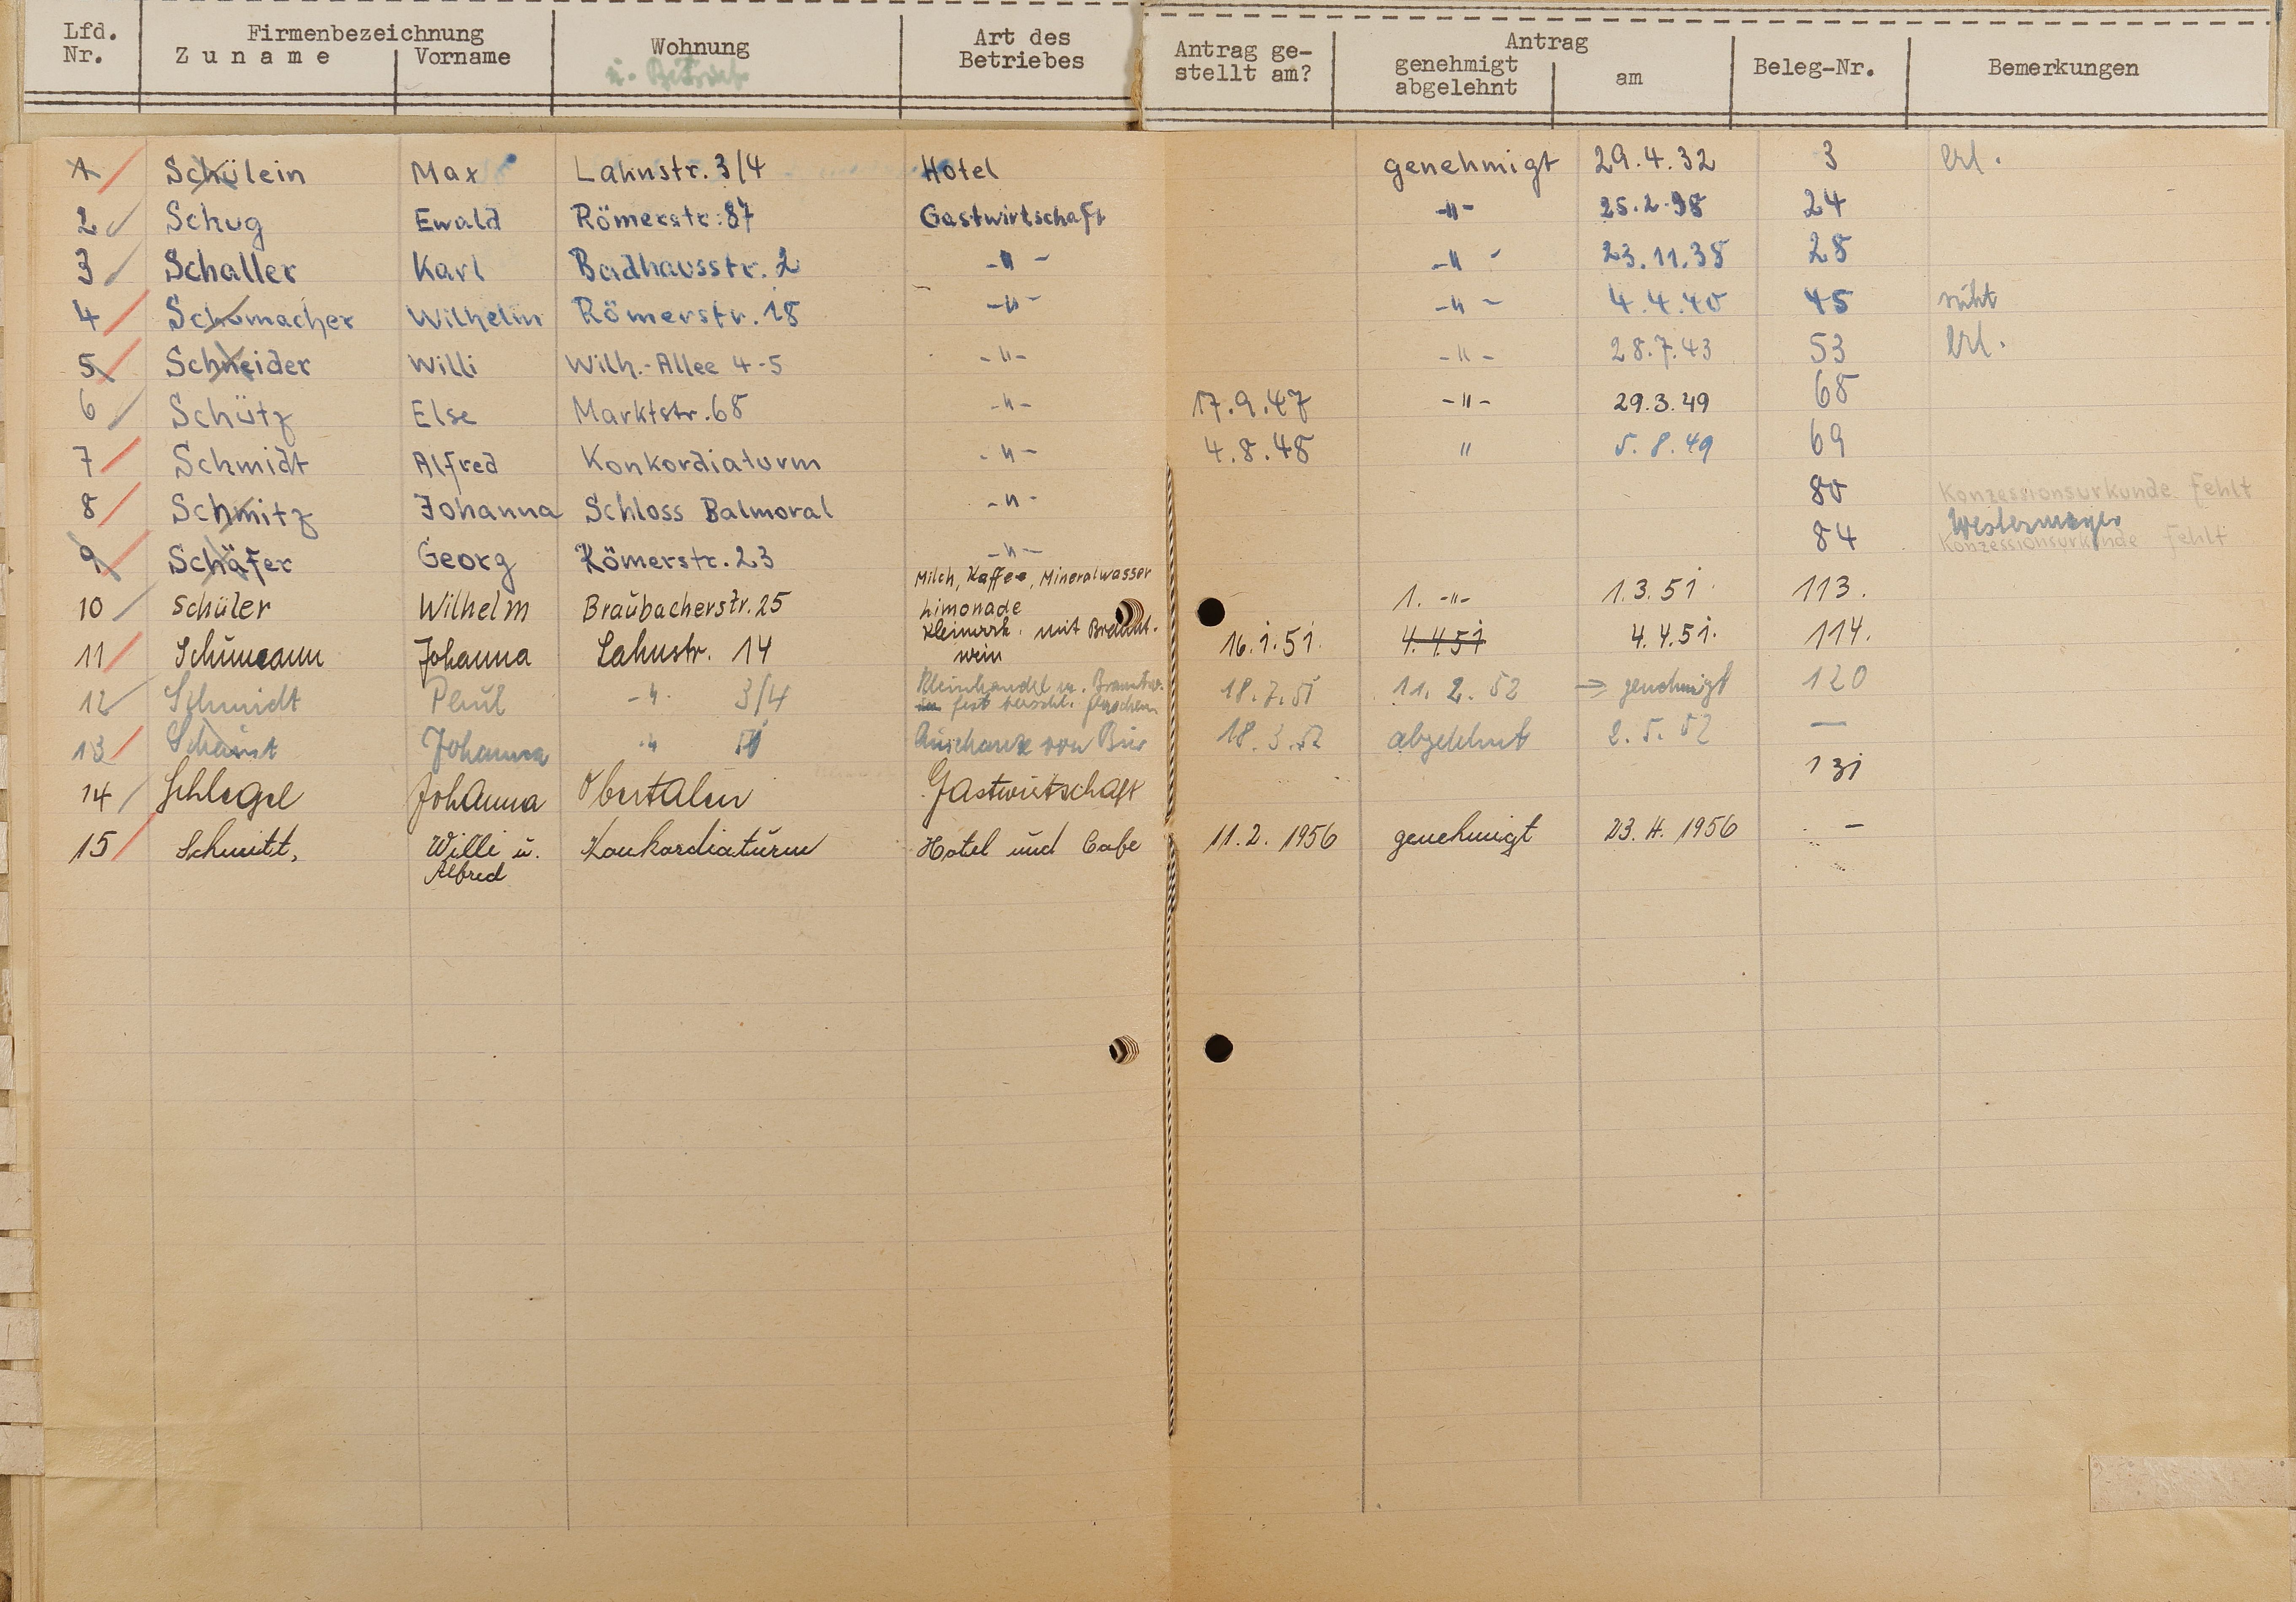 Lfd. Nr. Firmenbezeichnung Zuname Vorname Wohnung u. Betrieb Art des Betriebes Antrag ge-stellt am? Antrag genehmigt abgelehnt am Beleg-Nr. Bemerkungen
1 Schülein Max Lahnstr. 3/4 Hotel genehmigt 29.4.32 3 erl.
2 Schug Ewald Römerstr. 87 Gastwirtschaft -"- 25.2.38 24
3 Schaller Karl Badhausstr. 2 -"- -"- 23.11.38 28
4 Schomacher Wilhelm Römerstr. 18 -"- -"- 4.4.40 45 ruht
5 Schneider Willi Wilh.-Allee 4-5 -"- -"- 28.7.43 53 erl.
6 Schütz Else Marktstr. 68 -"- 17.9.47 -"- 29.3.49 68
7 Schmidt Alfred Konkordiaturm -"- 4.8.48 " 5.8.49 69
8 Schmitz Johanna Schloss Balmoral -"- 80 Konzessionsurkunde fehlt
9 Schäfer Georg Römerstr. 23 -"- 84 Westermeyer Konzessionsurkunde fehlt
10 Schüler Wilhelm Braubacherstr. 25 Milch, Kaffee, Mineralwasser Limonade 1. -"- 1.3.51. 113.
11 Schumann Johanna Lahnstr. 14 Kleinverk. mit Branntwein 16.1.51. 4.4.51 4.4.51. 114.
12 Schmidt Paul -"- 3/4 Kleinhandel m. Branntw. in fest verschl. Flaschen 18.7.51 11.2.52 → genehmigt 120
13 Johanna -"- Ausschank von Bier 18.3.52 abgelehnt 2.5.52 —
14 Schlegel Johanna Oberstalen Gastwirtschaft 131
15 Schmitt, Willi u. Alfred Konkordiaturm Hotel und Cafe 11.2.1956 genehmigt 23.4.1956 —